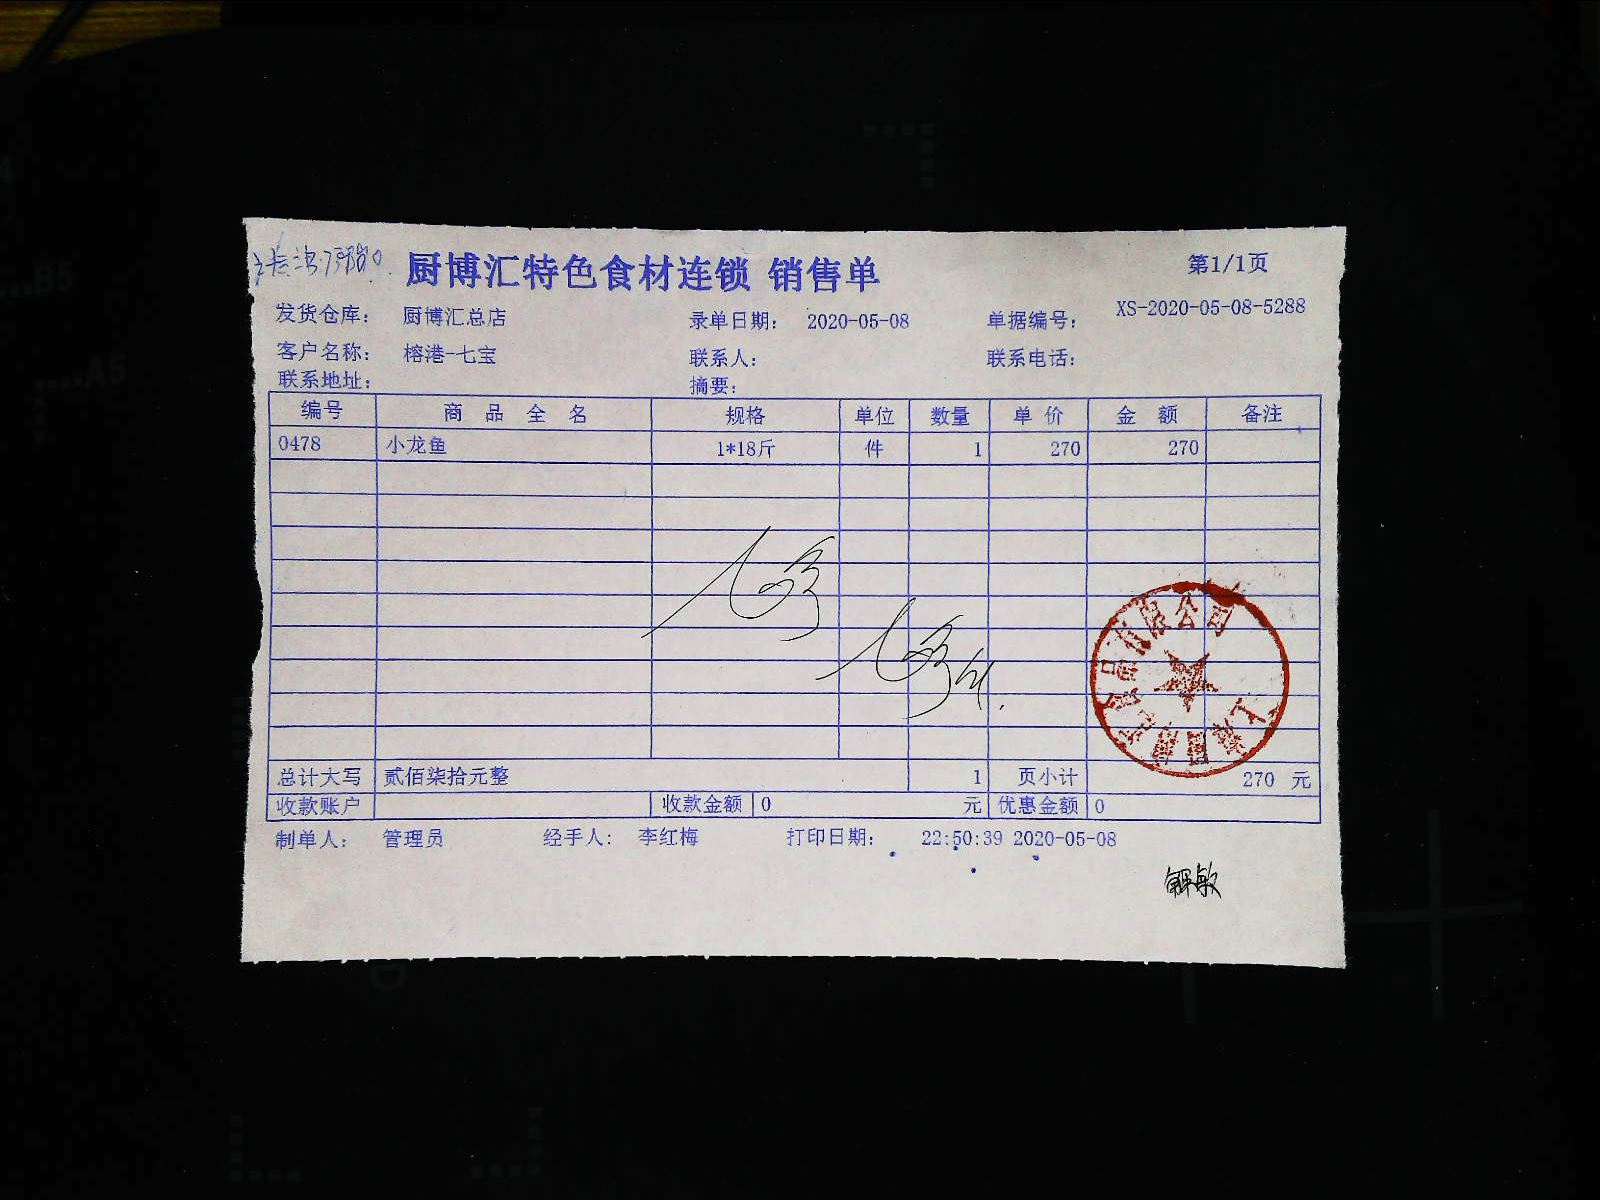 厨博汇特色食材连锁 销售单 第1/1页
发货仓库： 厨博汇总店 录单日期： 2020-05-08 单据编号： XS-2020-05-08-5288
客户名称： 榕港-七宝 联系人： 联系电话：
联系地址： 摘要：
编号 商品全名 规格 单位 数量 单价 金额 备注
0478 小龙鱼 1*18斤 件 1 270 270
有限公司
总计大写 贰佰柒拾元整 1 页小计 270 元
收款账户 收款金额 0 元 优惠金额 0
制单人： 管理员 经手人： 李红梅 打印日期： 22:50:39 2020-05-08
解敏